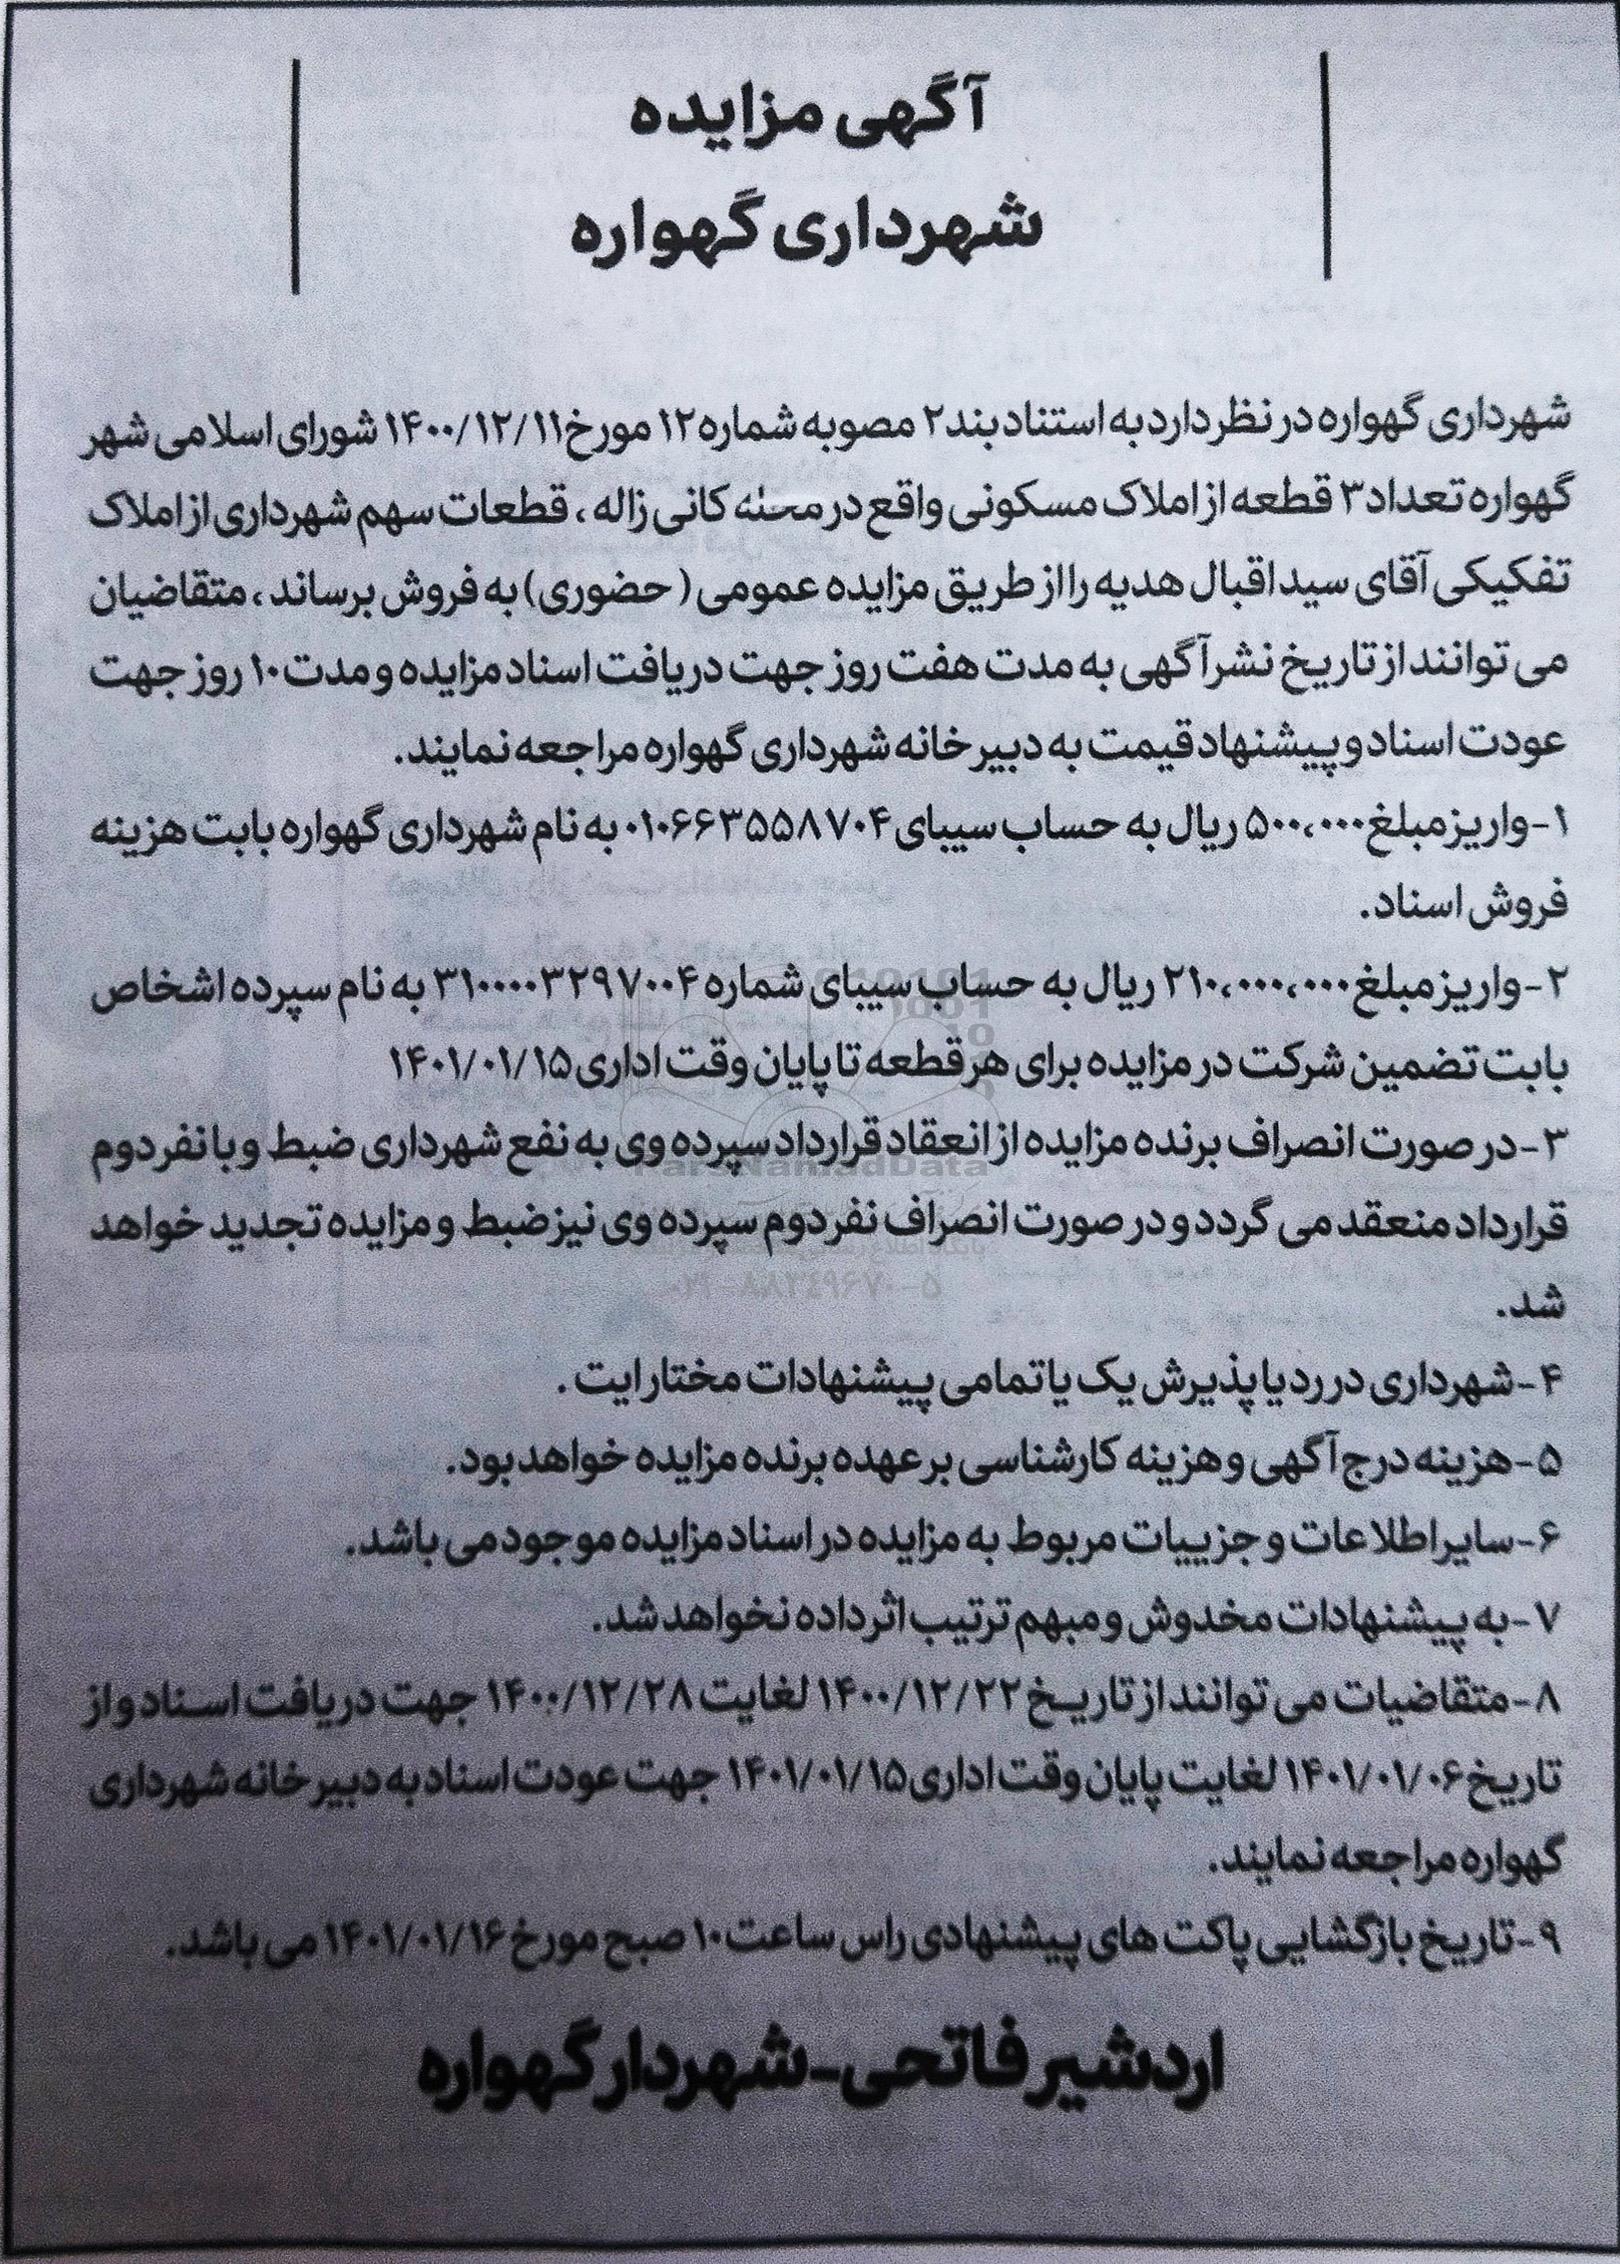 آگهی مزایده
شهرداری گهواره
شهرداری گهواره در نظر دارد به استناد بند ۲ مصوبه شماره ۱۲ مورخ ۱۴۰۰/۱۲/۱۱ شورای اسلامی شهر
گهواره تعداد ۳ قطعه از املاک مسکونی واقع در محله کانی زاله ، قطعات سهم شهرداری از املاک
تفکیکی آقای سید اقبال هدیه را از طریق مزایده عمومی ( حضوری) به فروش برساند ، متقاضیان
می توانند از تاریخ نشر آگهی به مدت هفت روز جهت دریافت اسناد مزایده و مدت ۱۰ روز جهت
عودت اسناد و پیشنهاد قیمت به دبیر خانه شهرداری گهواره مراجعه نمایند.
۱-واریز مبلغ ۵۰۰،۰۰۰ ریال به حساب سیبای ۰۱۰۶۶۳۵۵۸۷۰۴ به نام شهرداری گهواره بابت هزینه
فروش اسناد.
۲-واریز مبلغ ۲۱۰،۰۰۰،۰۰۰ ریال به حساب سیبای شماره ۳۱۰۰۰۰۳۲۹۷۰۰۴ به نام سپرده اشخاص
بابت تضمین شرکت در مزایده برای هر قطعه تا پایان وقت اداری ۱۴۰۱/۰۱/۱۵
۳-در صورت انصراف برنده مزایده از انعقاد قرارداد سپرده وی به نفع شهرداری ضبط و با نفر دوم
قرارداد منعقد می گردد و در صورت انصراف نفر دوم سپرده وی نیز ضبط و مزایده تجدید خواهد
شد.
۴-شهرداری در رد یا پذیرش یک یا تمامی پیشنهادات مختار ایت .
۵-هزینه درج آگهی و هزینه کارشناسی بر عهده برنده مزایده خواهد بود.
۶-سایر اطلاعات و جزییات مربوط به مزایده در اسناد مزایده موجود می باشد.
۷-به پیشنهادات مخدوش و مبهم ترتیب اثر داده نخواهد شد.
۸-متقاضیات می توانند از تاریخ ۱۴۰۰/۱۲/۲۲ لغایت ۱۴۰۰/۱۲/۲۸ جهت دریافت اسناد و از
تاریخ ۱۴۰۱/۰۱/۰۶ لغایت پایان وقت اداری ۱۴۰۱/۰۱/۱۵ جهت عودت اسناد به دبیر خانه شهرداری
گهواره مراجعه نمایند.
۹-تاریخ بازگشایی پاکت های پیشنهادی راس ساعت ۱۰ صبح مورخ ۱۴۰۱/۰۱/۱۶ می باشد.
اردشیر فاتحی-شهردار گهواره
ParsNamadData
۰۲۱-۸۸۳۴۹۶۷۰-۵